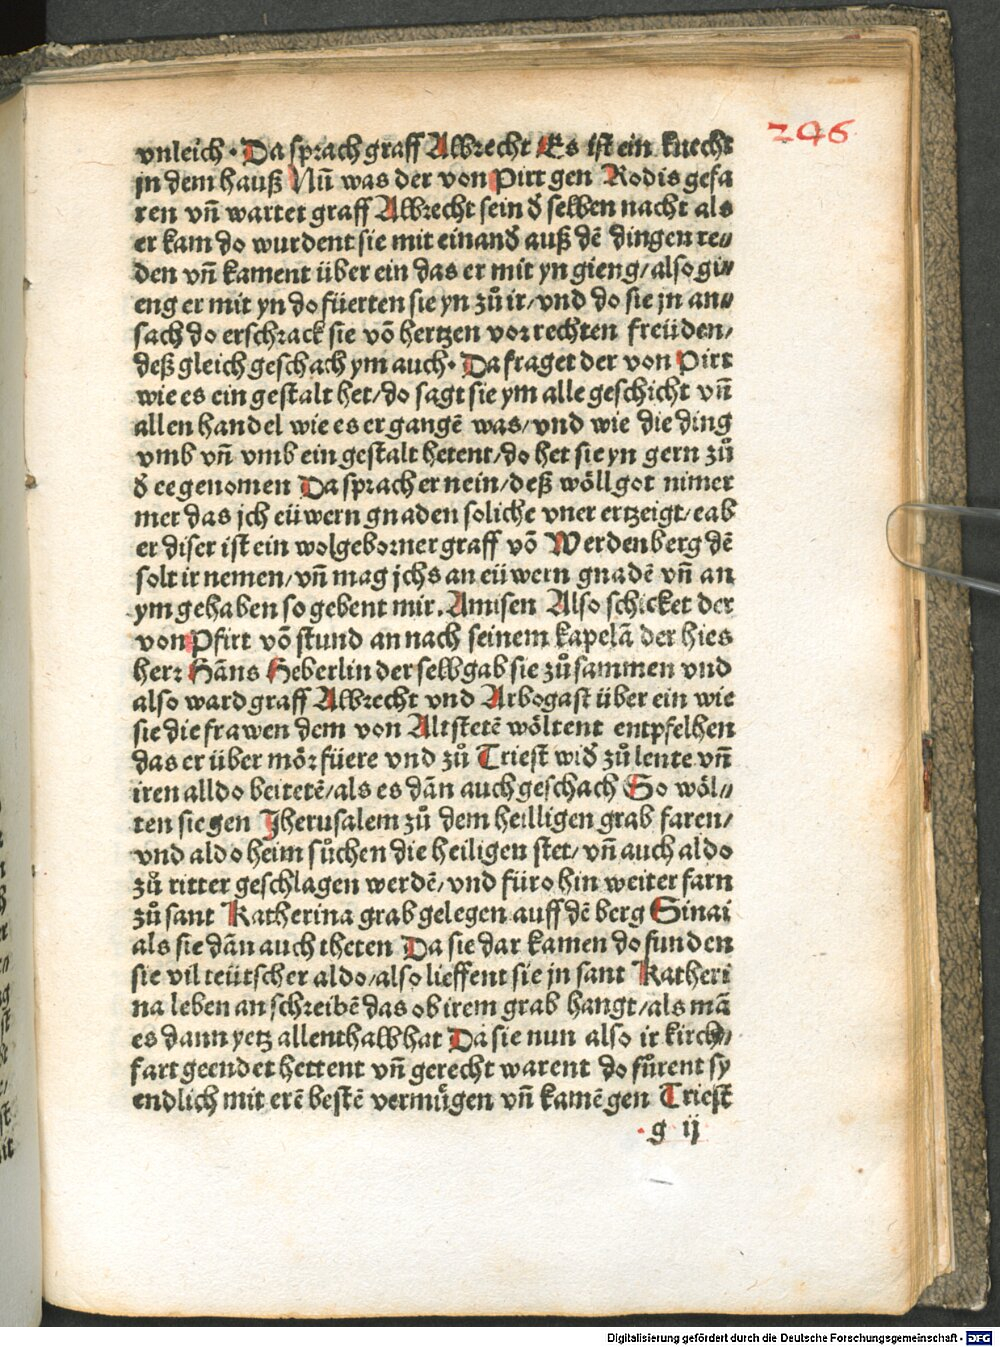 246
vnleich · Da sprach graff Albrecht Es ist ein knecht
jn dem hauß Nũ was der von Pirt gen Rodis gefa
ren vñ wartet graff Albrecht sein d̕ selben nacht als
er kam do wurdent sie mit einand̕ auß dẽ dingen re⸗
den vñ kament über ein das er mit yn gieng/also gi⸗
eng er mit yn do füerten sie yn zů ir/vnd do sie jn an⸗
sach do erschrack sie võ hertzen vor rechten freüden/
deß gleich geschach ym auch· Da fraget der von Pirt
wie es ein gestalt het/do sagt sie ym alle geschicht vñ
allen handel wie es er gangẽ was/vnd wie die ding
vmb vñ vmb ein gestalt hetent/do het sie yn gern zů
d̕ ee genomen Da sprach er nein/deß wöll got nimer
mer das jch eüwern gnaden soliche vner ertzeigt/eab
er diser ist ein wolgeborner graff võ Werdenberg dẽ
solt ir nemen/vñ mag jchs an eüwern gnadẽ vñ an
ym gehaben so gebent mir. Amisen Also schicket der
von Pfirt võ stund an nach seinem kapelã der hies
herr Hãns Heberlin der selb gab sie zůsammen vnd
also ward graff Albrecht vnd Arbogast über ein wie
sie die frawen dem von Altstetẽ wöltent entpfelhen
das er über mör füere vnd zů Triest wid̕ zů lente vñ
iren alldo beitetẽ/als es dãn auch geschach So wöl⸗
ten sie gen Jherusalem zů dem heilligen grab faren/
vnd aldo heim sůchen die heiligen stet/vñ auch aldo
zů ritter geschlagen werdẽ/vnd füro hin weiter farn
zů sant Katherina grab gelegen auff dẽ berg Sinai
als sie dãn auch theten Da sie dar kamen do funden
sie vil teütscher aldo/also lieffent sie jn sant Katheri
na leben an schreibẽ das ob irem grab hangt/als mã
es dann yetz allenthalb hat Da sie nun also ir kirch⸗
fart geendet hettent vñ gerecht warent do fůrent sy
endlich mit erẽ bestẽ vermügen vñ kamẽ gen Triest
g ij
Digitalisierung gefördert durch die Deutsche Forschungsgemeinschaft - DFG